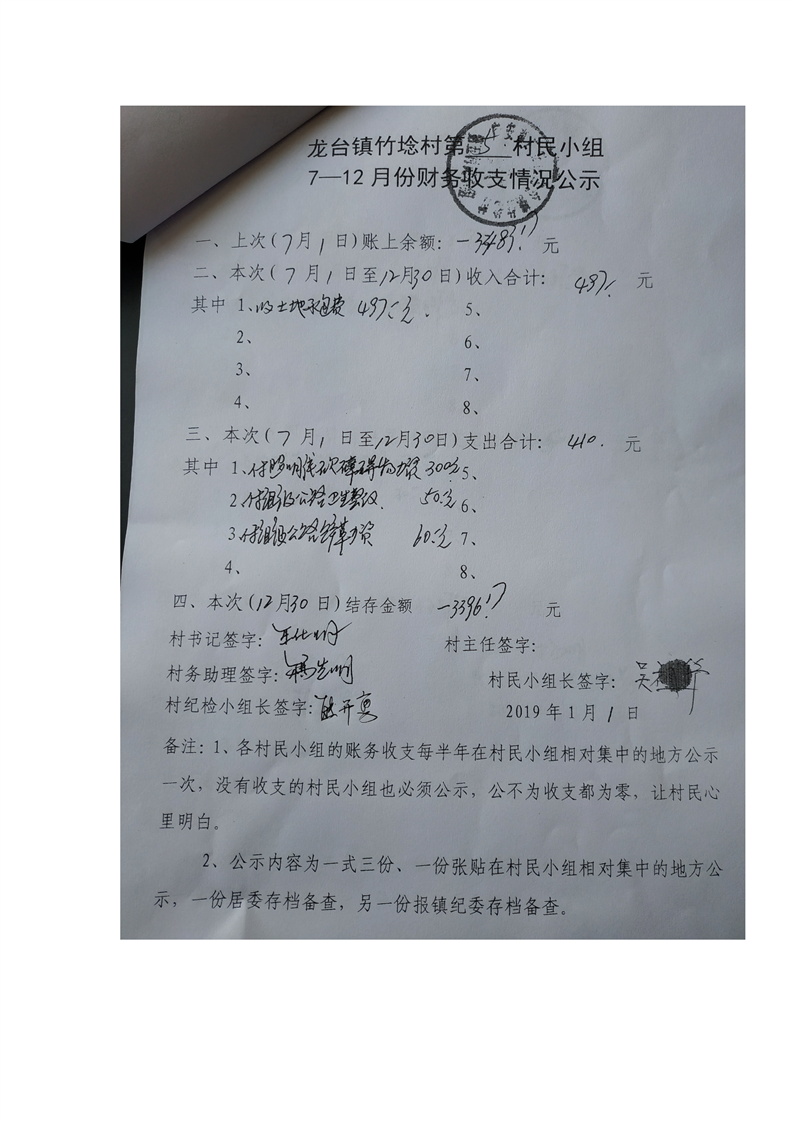 龙台镇竹埝村第 5 村民小组
7—12月份财务收支情况公示
一、上次(7月1日)账上余额: -3483.17 元
二、本次(7月1日至12月30日)收入合计: 497. 元
其中 1、收土地承包费 497.元. 5、
2、 6、
3、 7、
4、 8、
三、本次(7月1日至12月30日)支出合计: 410. 元
其中 1、付照明 300元 5、
2、付组级公路卫生 50.元 6、
3、付组级公路 60.元 7、
4、 8、
四、本次(12月30日)结存金额 -3396.17 元
村书记签字: 村主任签字:
村务助理签字: 村民小组长签字:
村纪检小组长签字: 2019年1月1日
备注:1、各村民小组的账务收支每半年在村民小组相对集中的地方公示
一次,没有收支的村民小组也必须公示,公不为收支都为零,让村民心
里明白。
2、公示内容为一式三份、一份张贴在村民小组相对集中的地方公
示,一份居委存档备查,另一份报镇纪委存档备查。